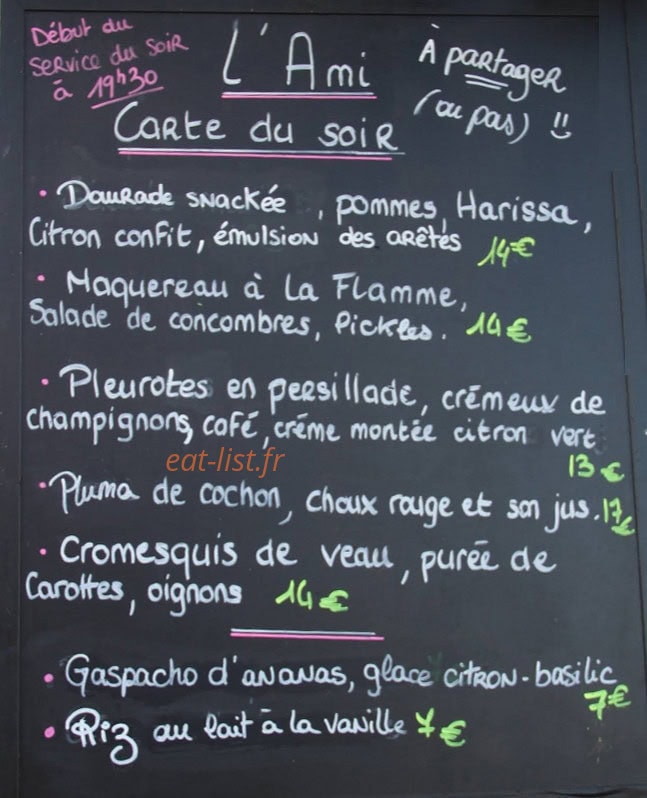 Début du
service du soir
à 19h30
L'Ami
À partager
(ou pas) !!
Carte du soir
• Daurade snackée, pommes, Harissa,
Citron confit, émulsion des arêtes 14€
• Maquereau à la Flamme,
Salade de concombres, Pickles. 14€
• Pleurotes en persillade, crémeux de
champignons, café, crème montée citron vert
13€
eat-list.fr
• Pluma de cochon, choux rouge et son jus. 17€
• Cromesquis de veau, purée de
Carottes, oignons 14€
• Gaspacho d'ananas, glace citron-basilic
7€
• Riz au lait à la vanille 7€